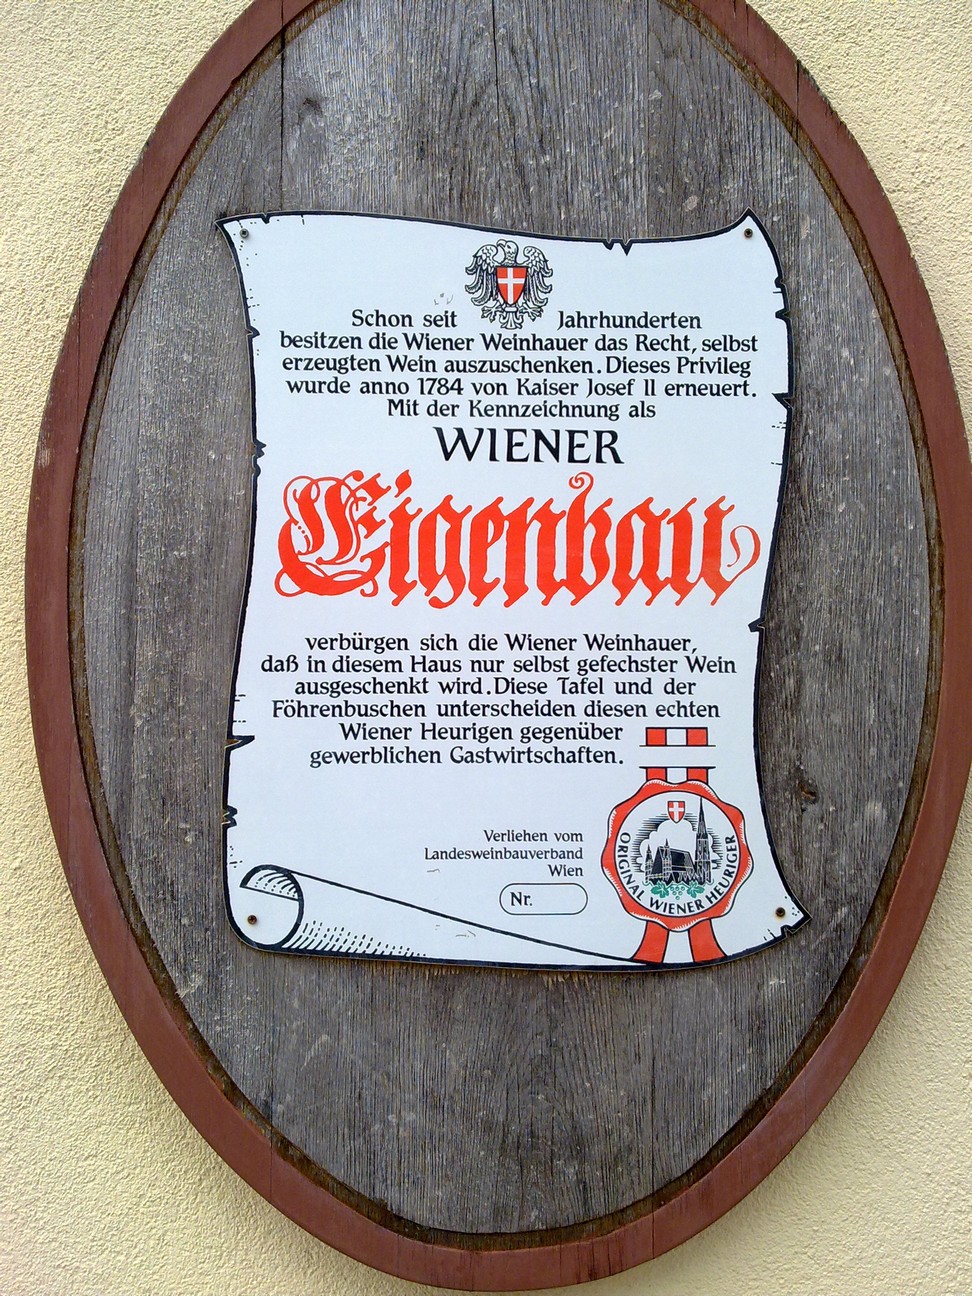 Schon seit Jahrhunderten
besitzen die Wiener Weinhauer das Recht, selbst
erzeugten Wein auszuschenken. Dieses Privileg
wurde anno 1784 von Kaiser Josef II erneuert.
Mit der Kennzeichnung als
WIENER
Eigenbau
verbürgen sich die Wiener Weinhauer,
daß in diesem Haus nur selbst gefechster Wein
ausgeschenkt wird. Diese Tafel und der
Föhrenbuschen unterscheiden diesen echten
Wiener Heurigen gegenüber
gewerblichen Gastwirtschaften.
Verliehen vom
Landesweinbauverband
Wien
Nr.
ORIGINAL WIENER HEURIGER